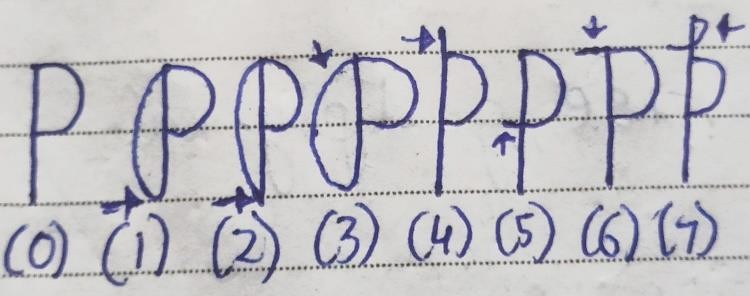 P P P P P P P P
(0) (1) (2) (3) (4) (5) (6) (7)